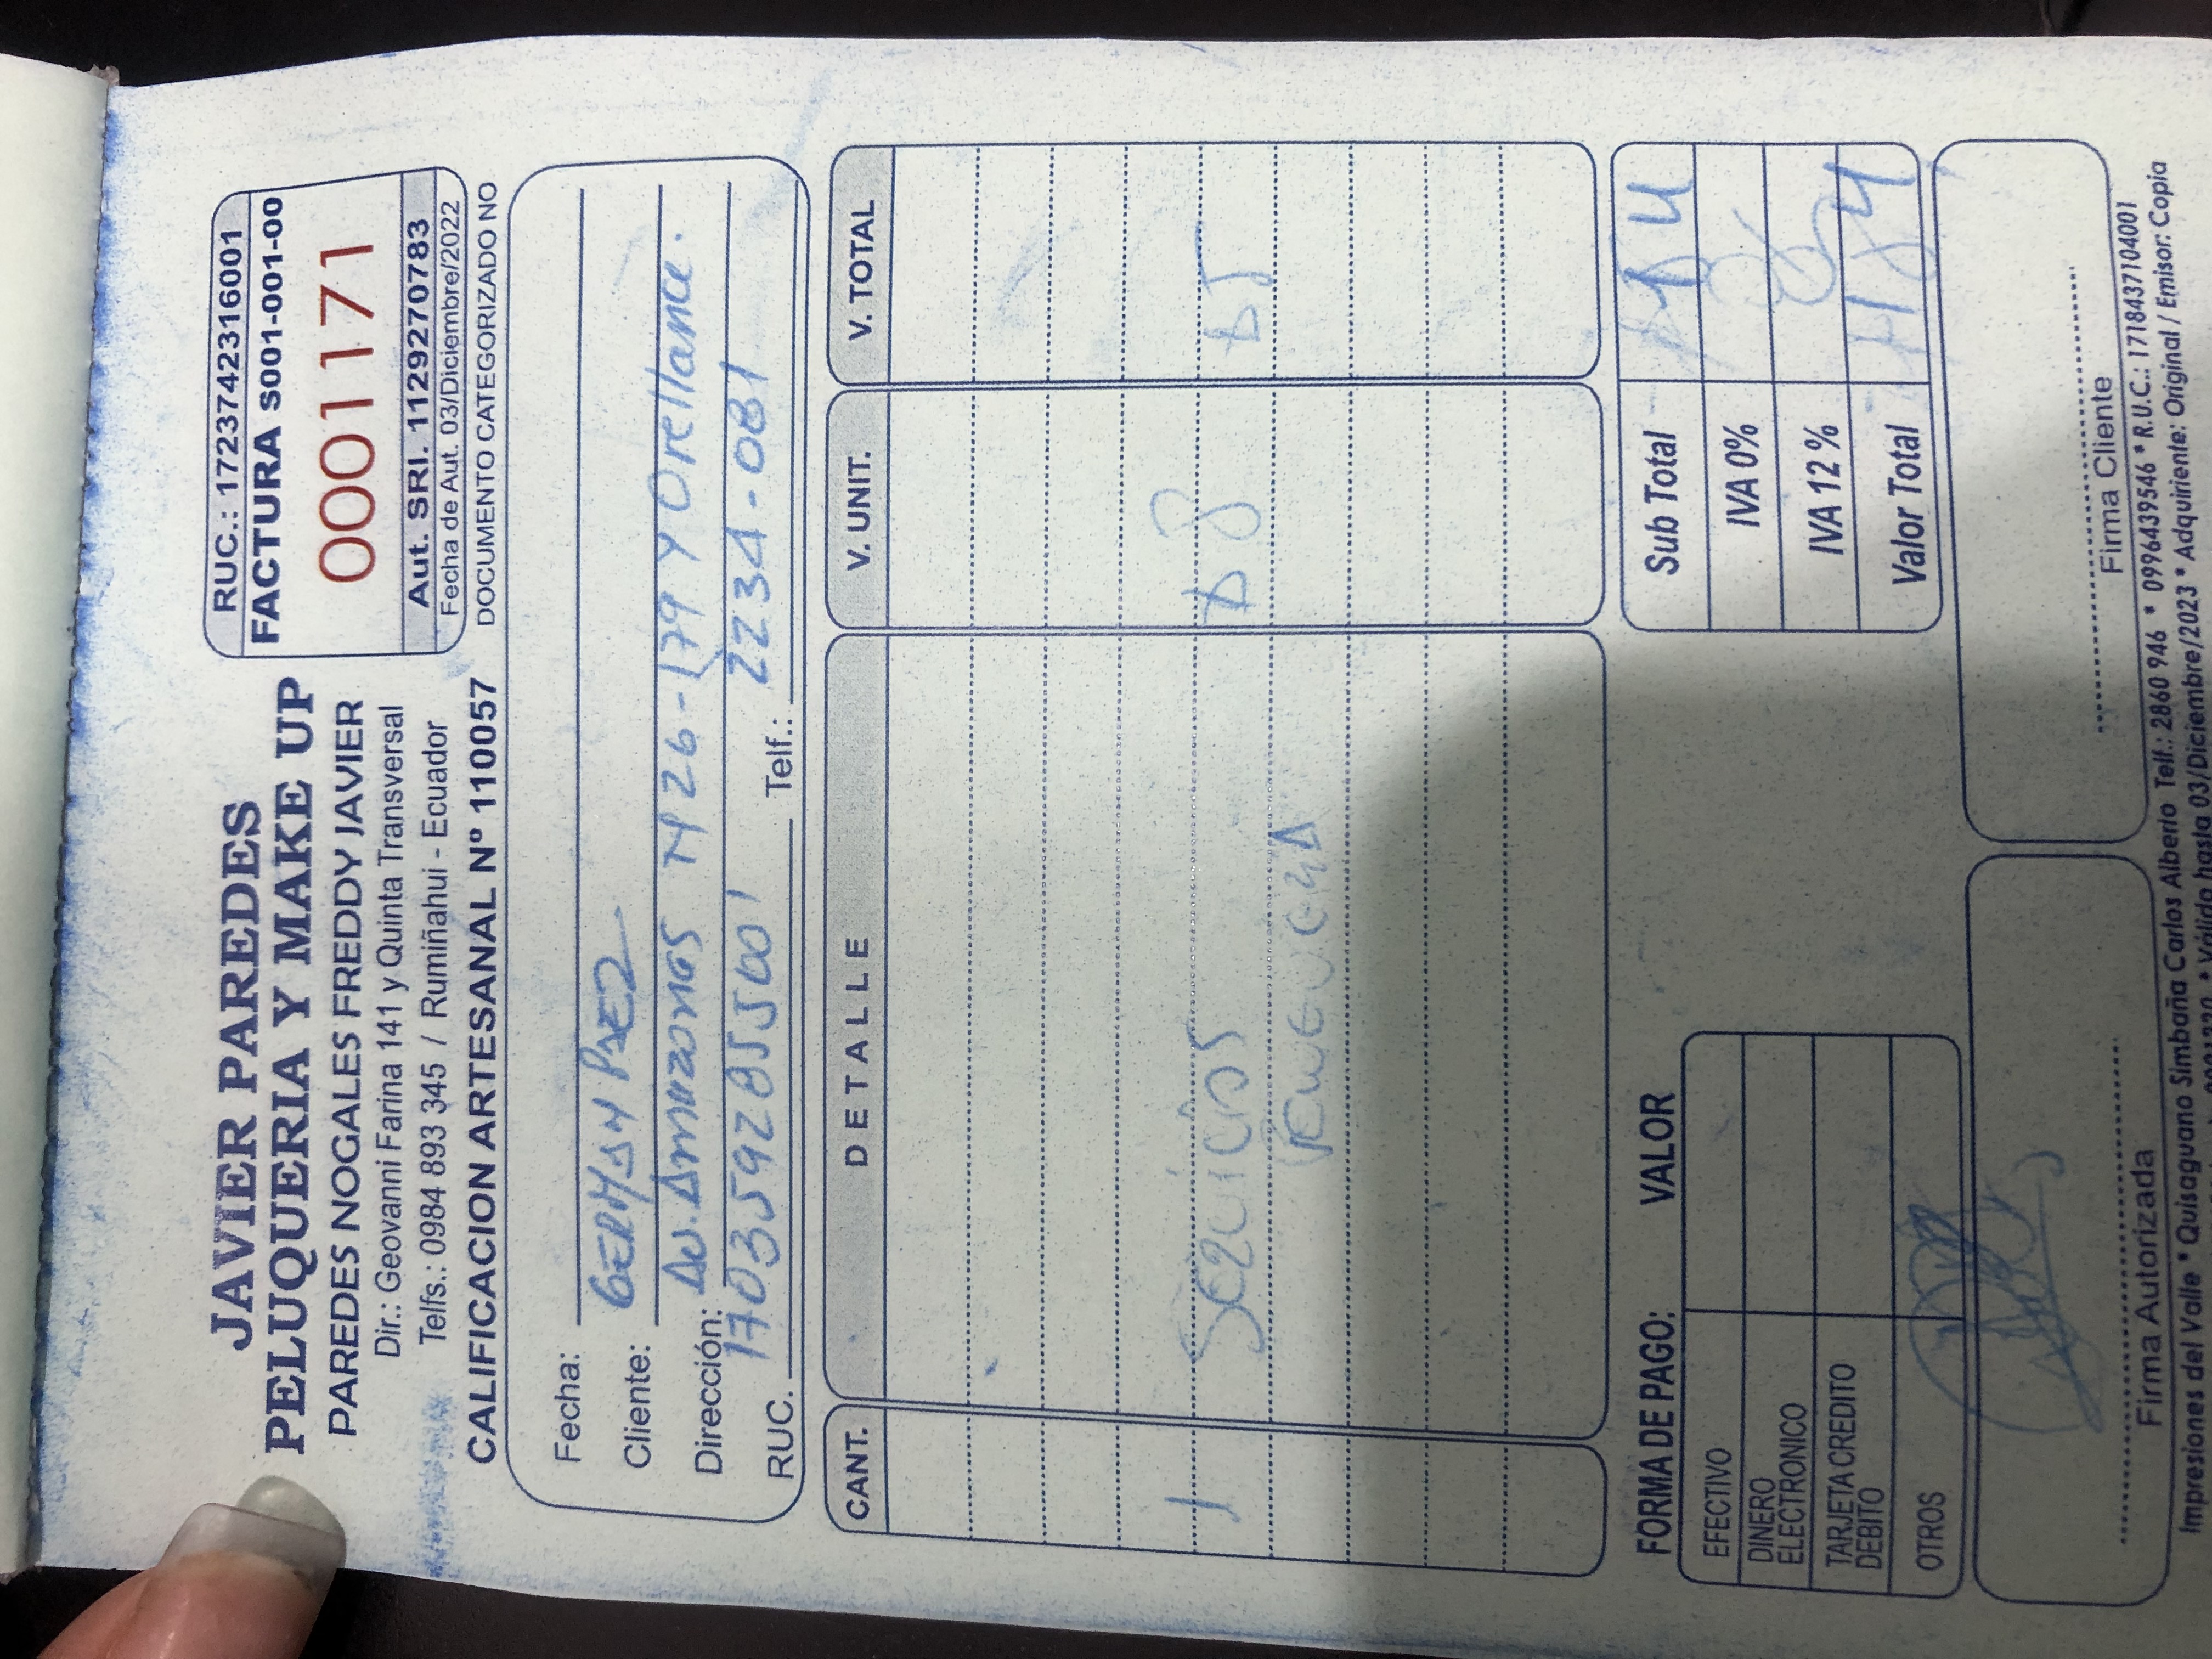 JAVIER PAREDES
PELUQUERIA Y MAKE UP
PAREDES NOGALES FREDDY JAVIER
Dir.: Geovanni Farina 141 y Quinta Transversal
Telfs.: 0984 893 345 / Rumiñahui - Ecuador
CALIFICACION ARTESANAL Nº 110057
RUC.: 1723742316001
FACTURA S001-001-00
0001171
Aut. SRI. 1129270783
Fecha de Aut. 03/Diciembre/2022
DOCUMENTO CATEGORIZADO NO
Fecha:
Cliente: GERMAN PAEZ
Dirección: Av. Amazonas N 26-179 Y Orellance.
RUC. 1703592855001 Telf.: 2234-081
CANT. DETALLE V. UNIT. V. TOTAL
1 Servicios $ 8 $5
FORMA DE PAGO: VALOR
EFECTIVO
DINERO ELECTRONICO
TARJETA CREDITO DEBITO
OTROS
Sub Total 14
IVA 0%
IVA 12 %
Valor Total 14
Firma Autorizada
Firma Cliente
Impresiones del Valle * Quisaguano Simbaña Carlos Alberto Telf.: 2860 946 * 0996439546 * R.U.C.: 1718437104001
* Válido hasta 03/Diciembre/2023 * Adquiriente: Original / Emisor: Copia